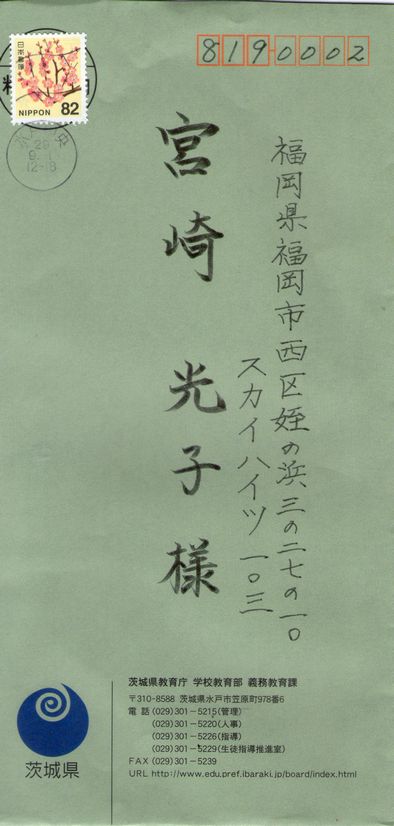 日本郵便
NIPPON 82
29
12-18
819-0002
福岡県福岡市西区姪の浜三の二七の一〇
スカイハイツ一〇三
宮崎 光子様
茨城県
茨城県教育庁 学校教育部 義務教育課
〒310-8588 茨城県水戸市笠原町978番6
電話 (029)301-5215(管理)
(029)301-5220(人事)
(029)301-5226(指導)
(029)301-5229(生徒指導推進室)
FAX (029)301-5239
URL http://www.edu.pref.ibaraki.jp/board/index.html